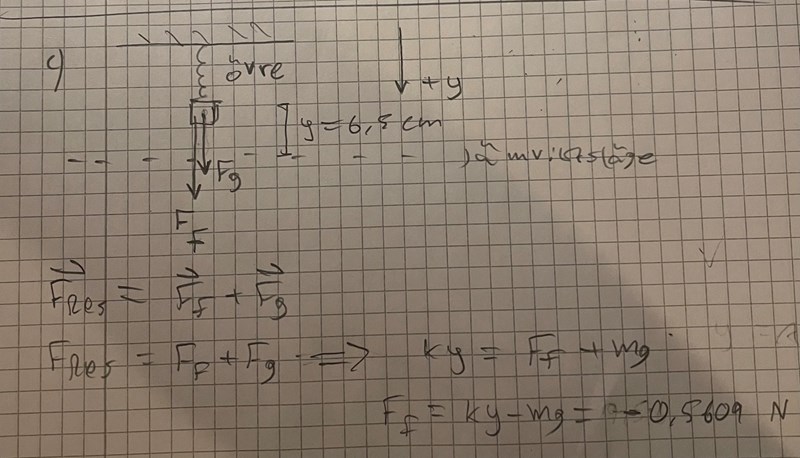 c)
övre
+y
y = 6,5 cm
jämviktsläge
Fg
Ff
F⃗Res = F⃗f + F⃗g
FRes = FF + Fg ⟹ ky = Ff + mg
Ff = ky - mg = -0,5609 N